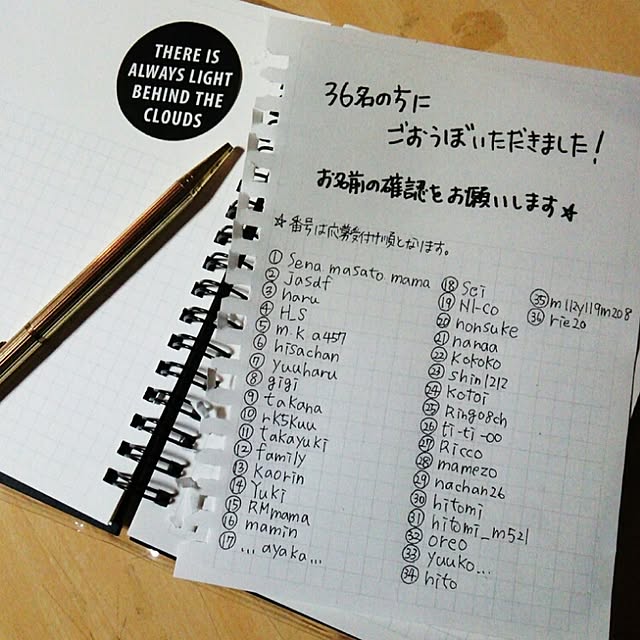 THERE IS
ALWAYS LIGHT
BEHIND THE
CLOUDS
36名の方に
ごおうぼいただきました!
お名前の確認をお願いします☆
☆番号は応募受付け順となります。
① Sena masato mama
② Jasdf
③ haru
④ HLS
⑤ m.k a457
⑥ hisachan
⑦ yuuharu
⑧ gigi
⑨ takana
⑩ rk5kuu
⑪ takayuki
⑫ family
⑬ kaorin
⑭ Yuki
⑮ RMmama
⑯ mamin
⑰ ... ayaka...
⑱ Sei
⑲ NI-CO
⑳ nonsuke
㉑ nanaa
㉒ Kokoko
㉓ Shin1212
㉔ Kotoi
㉕ Ringo8ch
㉖ ti-ti-oo
㉗ Ricco
㉘ mamezo
㉙ nachan26
㉚ hitomi
㉛ hitomi_m521
㉜ oreo
㉝ yuuko...
㉞ hito
㉟ m112y119m208
㊱ rie20